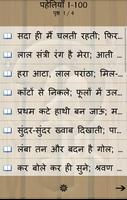 पहेलियाँ 1-100
पृष्ठ 1 / 4
सदा ही मैं चलती रहती; फिर...
लाल संत्री रंग है मेरा; आती ...
हरा आटा, लाल परांठा; मिल-...
काँटों से निकले; फूलों में उल...
प्रथम कटे हाथी बन जाऊं; म...
सुंदर-सुंदर ख्वाब दिखाती; पा...
लंबा तन और बदन है गोल; ...
कर बोले कर ही सुने; श्रवण ...